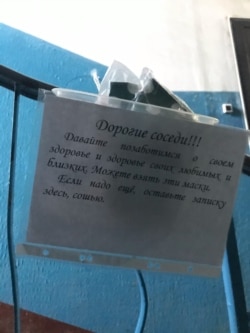 Дорогие соседи!!!
Давайте позаботимся о своем
здоровье и здоровье своих любимых и
близких. Можете взять эти маски.
Если надо ещё, оставьте записку
здесь, сошью.